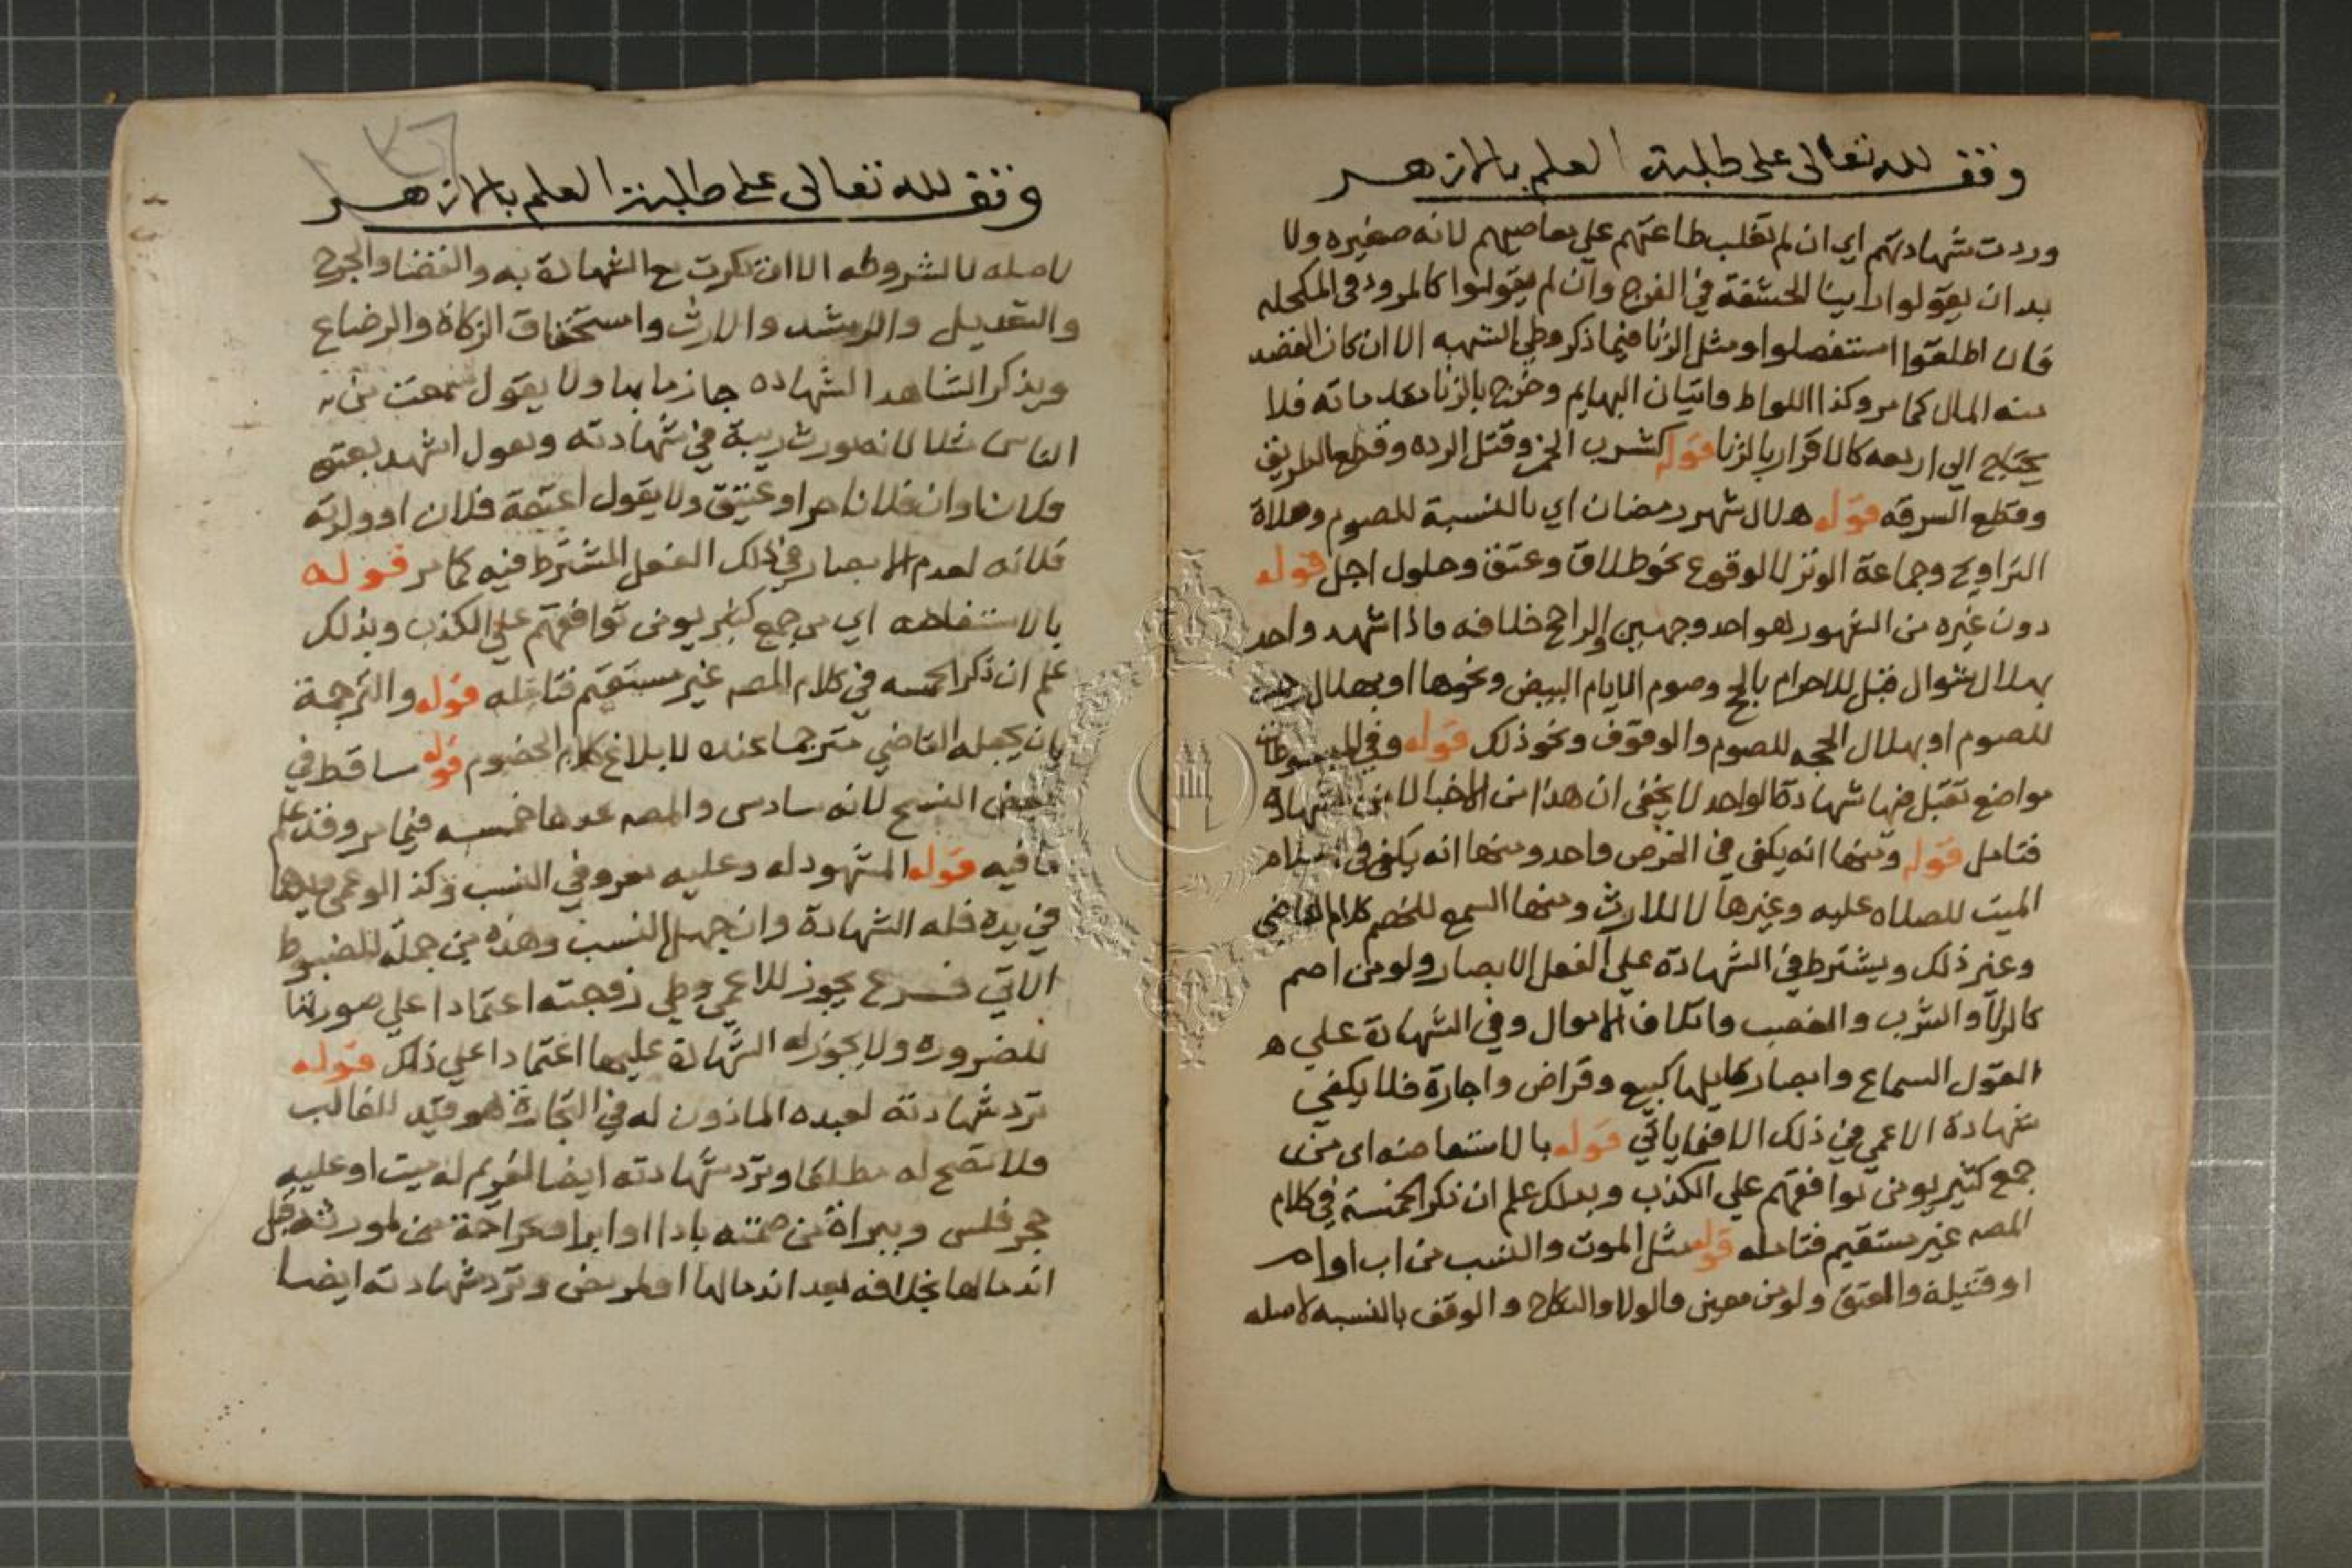 وقف لله تعالى على طلبة العلم بالازهر
وردت شهادتهم اي ان لم تغلب طاعتهم علي معاصيهم لانه صغيره ولا
بد ان يقولوا راينا الحشفة في الفرج وان لم يقولوا كالمرود في المكحله
فان اطلقوا استفصلوا ومثل الزنا فيما ذكر وطي الشبهه الا ان كان القصد
منه المال كما مر وكذا اللواط واتيان البهايم وخرج بالزنا مقدماته فلا
يحتاج الي اربعه كالاقرار بالزنا قوله كشرب الخمر وقتل الرده وقطع الطريق
وقطع السرقه قوله هلال شهر رمضان اي بالنسبة للصوم وصلاة
التراويح وجماعة الوتر لا لوقوع نحو طلاق وعتق وحلول اجل قوله
دون غيره من الشهور هو احد وجهين والراجح خلافه فاذا شهد واحد
بهلال شوال قبل للاحرام بالحج وصوم الايام البيض ونحوها او بهلال رجب
للصوم او بهلال الحجه للصوم والوقوف ونحو ذلك قوله وفي المبسوطات
مواضع تقبل فيها شهادة الواحد لا يخفي ان هذا من الاخبار لا من الشهادة
فتامل قوله ومنها انه يكفي في الخرص واحد ومنها انه يكفي في اسلام
الميت للصلاه عليه وغيرها لا للارث ومنها السمع للخصم كلام القاضي
وغير ذلك ويشترط في الشهادة علي الفعل الابصار ولو من اصم
كالزنا والشرب والغصب واتلاف الاموال وفي الشهادة علي ه
القول السماع وابصار قايلها كبيع وقراض واجارة فلا يكفي
شهادة الاعمي في ذلك الا فيما ياتي قوله بالاستفاضه اي من
جمع كثير يومن توافقهم علي الكذب وبذلك علم ان ذكر الخمسة في كلام
المصه غير مستقيم فتامله قوله مثل الموت والنسب من اب او ام
او قبيلة والعتق ولو من معين والولا والنكاح والوقف بالنسبه لاصله
وقف لله تعالى على طلبة العلم بالازهر
لاصله لا لشروطه الا ان ذكرت مع الشهادة به والقضا والجرح
والتعديل والرشد والارث واستحقاق الزكاة والرضاع
ويذكر الشاهد الشهاده جازما بها ولا يقول سمعت من
الناس مثلا لانه يورث ريبة في شهادته ويقول اشهد بعتق
فلانا وان فلانا حرا وعتيق ولا يقول اعتقه فلان او ولدته
فلانه لعدم الابصار في ذلك الفعل المشترط فيه كما مر قوله
بالاستفاضه اي من جمع كثير يومن توافقهم علي الكذب وبذلك
علم ان ذكر الخمسه في كلام المصه غير مستقيم فتامله قوله والترجمة
بان يجعله القاضي مترجما عنده لابلاغ كلام الخصوم قوله ساقط في
بعض النسخ لانه سادس والمصه عدها خمسه فيما مر وقد علم
ما فيه قوله المشهود له وعليه معروفي النسب وكذا لو عمي ويدها
في يده فله الشهادة وان جهل النسب وهذه من جملة المضبوط
الاتي فرع يجوز للاعمي وطي زوجته اعتمادا علي صوتها
للضروره ولا يجوز له الشهادة عليها اعتمادا علي ذلك قوله
ترد شهادته لعبده الماذون له في التجارة هو قيد للغالب
فلا تصح له مطلقا وترد شهادته ايضا لغريم له ميت او عليه
حجر فلس وببراة من ضمنه بادا او ابرا وبجراحة من لمورثه قبل
اندمالها بخلافه بعد اندمالها او لمريض وترد شهادته ايضا